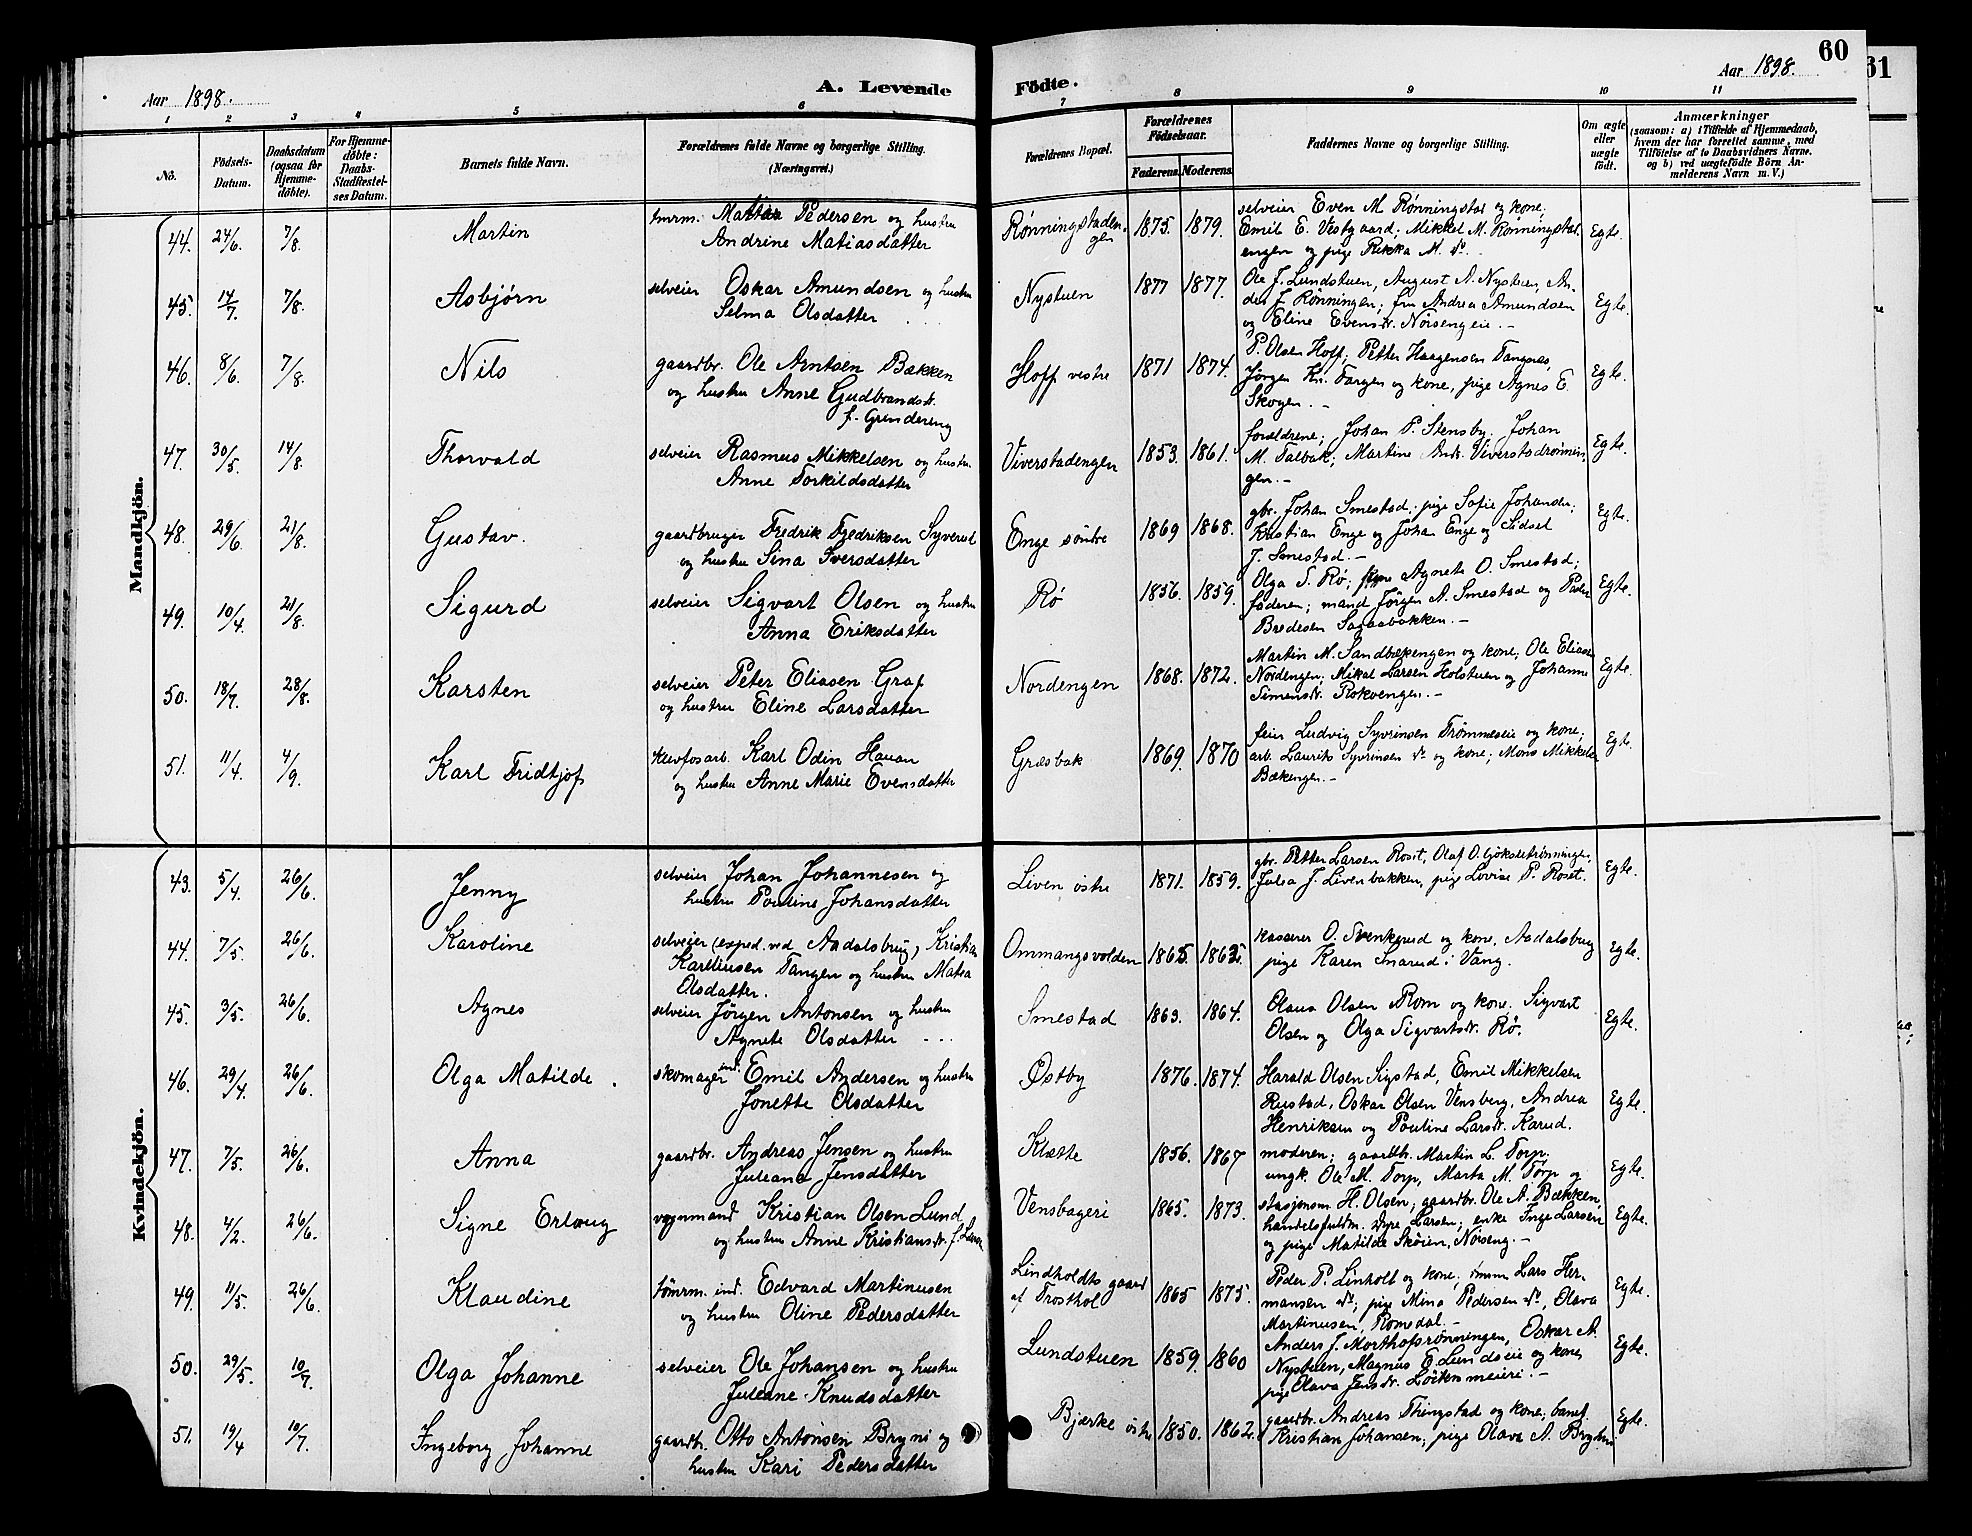 60
61
Aar 1898.
A. Levende
Fødte.
Aar 1898.
1 2 3 4 5 6 7 8 9 10 11
No.
Fødsels-Datum.
Daabsdatum (ogsaa for Hjemme-døbte).
For Hjemme-døbte: Daabs-Stadfæstel-ses Datum.
Barnets fulde Navn.
Forældrenes fulde Navne og borgerlige Stilling. (Næringsvei.)
Forældrenes Bopæl.
Forældrenes Fødselsaar.
Faderens. Moderens.
Faddernes Navne og borgerlige Stilling.
Om ægte eller uægte født.
Anmærkninger
(saasom: a) i Tilfælde af Hjemmedaab, hvem der har forrettet samme, med Tilføielse af to Daabsvidners Navne. og b) ved uægtefødte Børn An-melderens Navn m. V.)
Mandkjön.
44. 24/6. 7/8. Martin
Pedersen og hustru
Andrine Matiasdatter
Rønningstaden-gen 1875. 1879.
selveier Even M Rønningstad og kone,
Emil E. Vestgaard; Mikkel M. Rønningstad
engen og pige Rikka M. do.
Egte.
45. 14/7. 7/8. Asbjørn
selveier Oskar Amundsen og hustru
Selma Olsdatter
Nystuen 1877 1877.
Ole J. Lundstuen, August A. Nystuen, An-
ders J. Rønningen; fru Andrea Amundsen
og Eline Evensdr. Nørsengeie. -
Egte.
46. 8/6. 7/8. Nils
gaardbr. Ole Arntsen Bakken
og hustru Anne Gudbrandsdr.
f. Grindereng
Hoff vestre 1871 1874.
P. Olsen Hoff; Petter Haagensen Tangnes,
Jørgen Kr. Tangen og kone, pige Agnes E.
Skogen. -
Egte.
47. 30/5. 14/8. Thorvald
selveier Rasmus Mikkelsen og hustru
Anne Torkildsdatter
Viverstadengen 1853. 1861.
forældrene; Johan P. Stensby. Johan
M. Talbak; Martine Andr. Viverstadrønnin-
gen. -
Egte.
48. 29/6. 21/8. Gustav.
gaardbruger Fredrik Fredriksen Syverud
og hustru Sina Iversdatter
Enge søndre 1869 1868.
gbr. Johan Smestad; pige Sofie Johansdr;
Kristian Enge og Johan Enge og Sidsel
J. Smestad. -
Egte.
49. 10/4. 21/8. Sigurd
selveier Sigvart Olsen og hustru
Anna Eriksdatter
Rø 1856. 1859.
Olga S. Rø; Agnete O. Smestad;
faderen; mand Jørgen A. Smestad og Peder
Bredesen Sagaabakken. -
Egte.
50. 18/7. 28/8. Karsten
selveier Peter Eliasen Graf
og hustru Eline Larsdatter
Nordengen 1868. 1872.
Martin M. Sandbækengen og kone, Ole Eliasen
Nordengen; Mikal Larsen Holstuen og Johanne
Simensdr. Rokvengen. -
Egte.
51. 11/4. 4/9. Karl Fridtjof
Klevfosarb. Karl Odin Hauan
og hustru Anne Marie Evensdatter
Græsbak 1869. 1870
feier Ludvig Syvrinsen Trømmeseie og kone;
arb. Laurits Syvrinsen do og kone; Mons Mikkelsen
Bækengen. -
Egte.
Kvindekjön.
43. 5/4. 26/6. Jenny
selveier Johan Johannesen og
hustru Pouline Johansdatter
Liven østre 1871. 1859.
gbr. Petter Larsen Roset, Olaf O. Gjøksletrønningen,
Julia J. Livenbakken, pige Lovise P. Roset.
Egte.
44. 7/5. 26/6. Karoline
selveier (exped. ved Aadalsbrug) Kristian
Karelinsen Tangen og hustru Matea
Olsdatter.
Ommangsvolden 1865
kasserer O. Svenkerud og kone, Aadalsbrug
pige Karen Snarud i Vang.
Egte.
45. 3/5. 26/6. Agnes
selveier Jørgen Antonsen og hustru
Agnete Olsdatter
Smestad 1863. 1864.
Olaus Olsen Rom og kone, Sigvart
Olsen og Olga Sigvartsdr. Rø.
Egte.
46. 29/4. 26/6. Olga Matilde.
skomager ind. Emil Andersen og hustru
Jonette Olsdatter
Østby 1876. 1874.
Harald Olsen Sigstad, Emil Mikkelsen
Rustad, Oskar Olsen Vensberg, Andrea
Henriksen og Pouline Larsdr. Karud.
Egte.
47. 7/5. 26/6. Anna
gaardbr. Andreas Jensen og hustru
Juleane Jensdatter
Klætte 1856. 1867
moderen; gaardbr. Martin L. Torp,
ungk. Ole M. Torp, Marta M. Torp og
Egte.
48. 4/2. 26/6. Signe Erloug
vognmand Kristian Olsen Lund
og hustru Anne Kristiansdr.
Vensbageri 1865. 1873.
stasjonsm. H. Olsen, gaardbr. Ole A. Bækken,
handelsfuldm. Dyre Larsen; enke Inge Larsen
og pige Matilde Skøien, Nørseng. -
Egte.
49. 11/5. 26/6. Klaudine
tømrm. ind. Edvard Martinusen
og hustru Oline Pedersdatter
Lindholdts gaard
af Trosthol 1865 1875.
Peder P. Linholt og kone; tømm Lars Her-
mansen do; pige Mina Pedersen do, Olava
Martinusen, Romedal. -
Egte.
50. 29/5. 10/7. Olga Johanne
selveier Ole Johansen og hustru
Juleane Knudsdatter
Lundstuen 1859. 1860
Anders J. Morthofsrønningen, Oskar A.
Nystuen, Magnus E. Lundseie og kone
pige Olava Jensdr. Løiten meieri. -
Egte.
51. 19/4. 10/7. Ingeborg Johanne
gaardbr. Otto Antonsen Bryni og
hustru Kari Pedersdatter
Bjørke østre 1850. 1862.
gaardbr. Andreas Thingstad og kone;
Kristian Johansen; pige Olava A.
Egte.